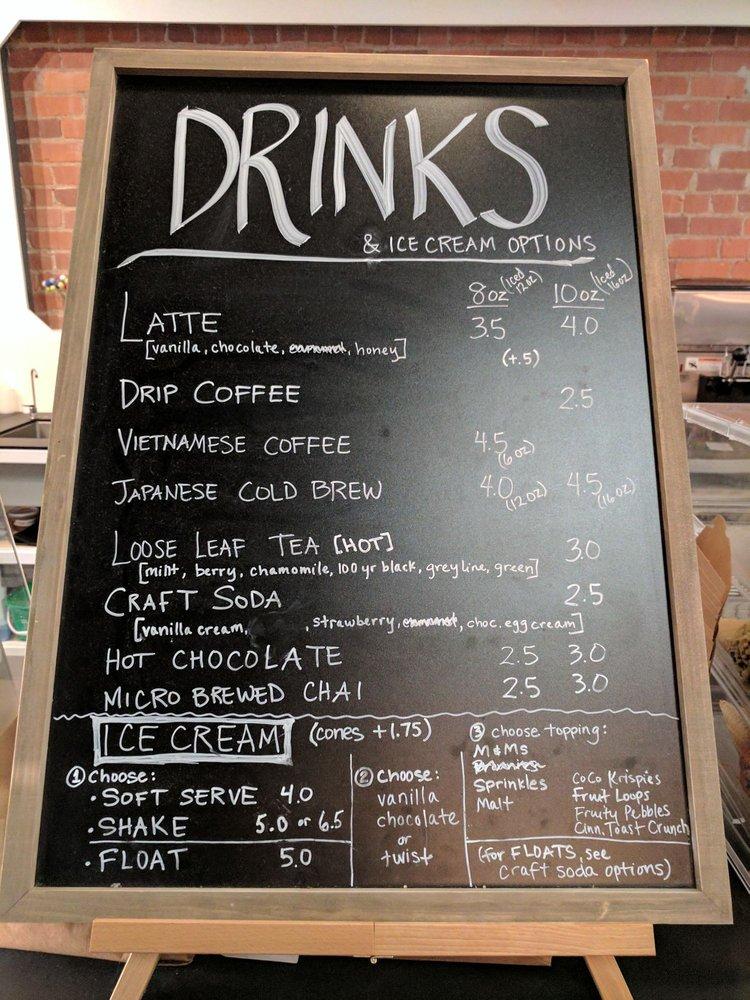 DRINKS
& ICE CREAM OPTIONS
8oz (iced 12oz) 10oz (iced 16oz)
LATTE 3.5 4.0
[vanilla, chocolate, caramel, honey] (+.5)
DRIP COFFEE 2.5
VIETNAMESE COFFEE 4.5 (6oz)
JAPANESE COLD BREW 4.0 (12oz) 4.5 (16oz)
LOOSE LEAF TEA [HOT] 3.0
[mint, berry, chamomile, 100 yr black, greyline, green]
CRAFT SODA 2.5
[vanilla cream, , strawberry, , choc. egg cream]
HOT CHOCOLATE 2.5 3.0
MICRO BREWED CHAI 2.5 3.0
ICE CREAM (cones +1.75)
① Choose:
• SOFT SERVE 4.0
• SHAKE 5.0 or 6.5
• FLOAT 5.0
② Choose:
vanilla
chocolate
or
twist
③ choose topping:
M&Ms
Brownies
Sprinkles
Malt
CoCo Krispies
Fruit Loops
Fruity Pebbles
Cinn. Toast Crunch
(for FLOATS, see
craft soda options)